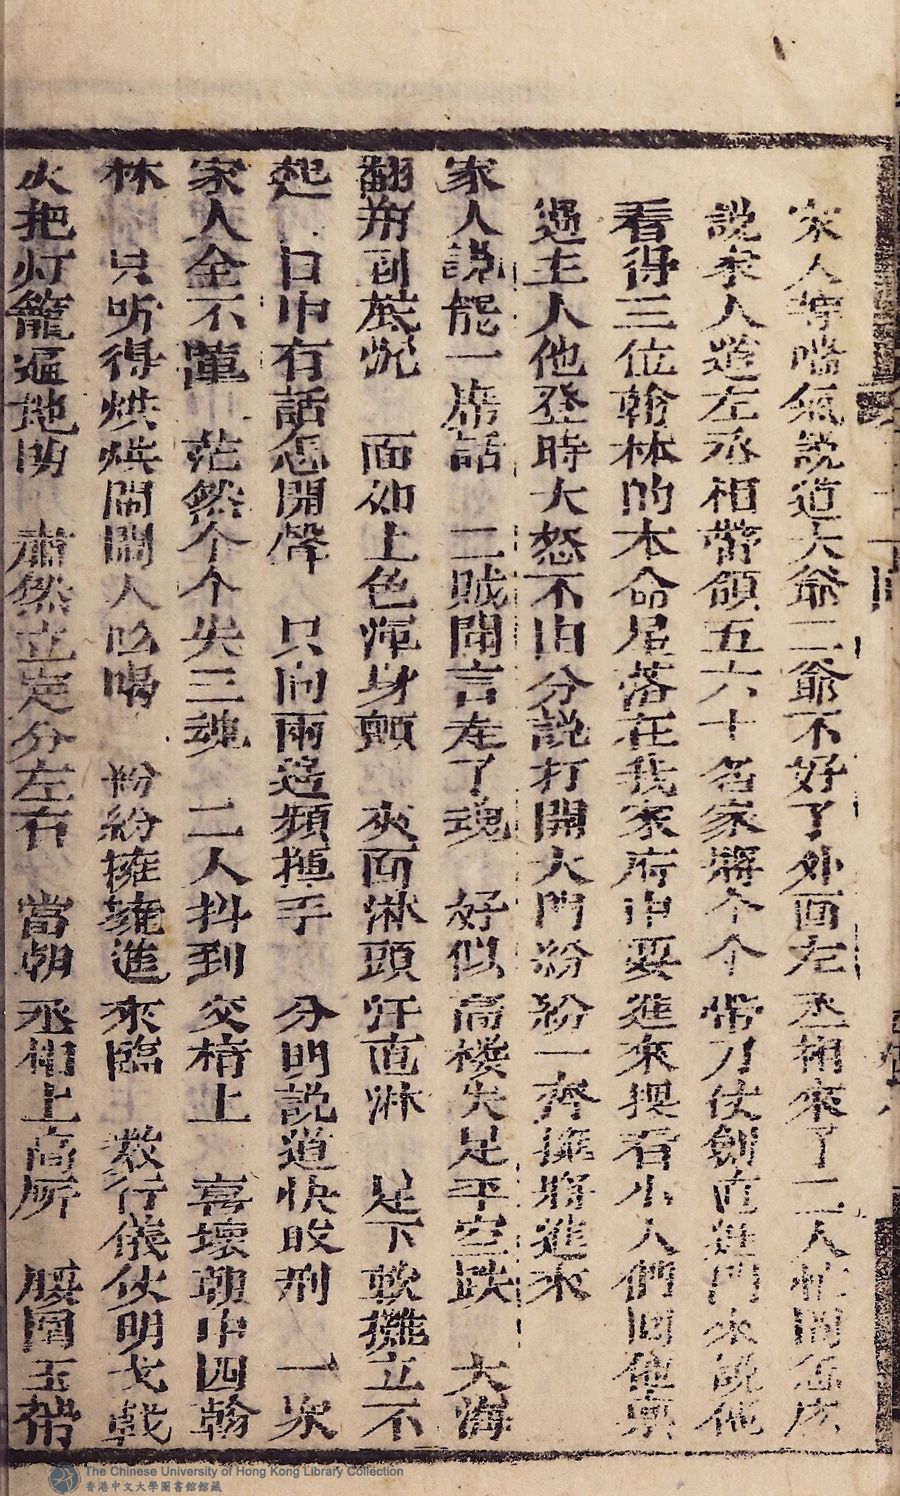 家人等喘氣說道大爺二爺不好了外面左丞相來了二人忙問怎広
說家人道左丞相帶領五六十名家將个个帶刀仗劍直進門來說他
看得三位翰林的本命星落在我家府中要進來搜看小人們回他稟
過主人他登時大怒不由分說打開大門紛紛一齊擁將進來
家人說罷一席話 二賊聞言走了魂 好似高楼失足平空跌 大海
翻舟到底沉 面如土色渾身顫 夾面淋頭汗直淋 足下軟攤立不
起 口中有話怎開聲 只向兩邊頻搖手 分明說道快收刑 一众
家人全不懂 茫然个个失三魂 二人抖到交椅上 喜壞朝中四翰
林 只听得烘烘閙閙人吆喝 紛紛擁擁進來臨 数行儀伙明戈戟
火把灯籠遍地明 肅然立定分左右 當朝丞相上高所 腰圍玉帶
The Chinese University of Hong Kong Library Collection
香港中文大學圖書館館藏